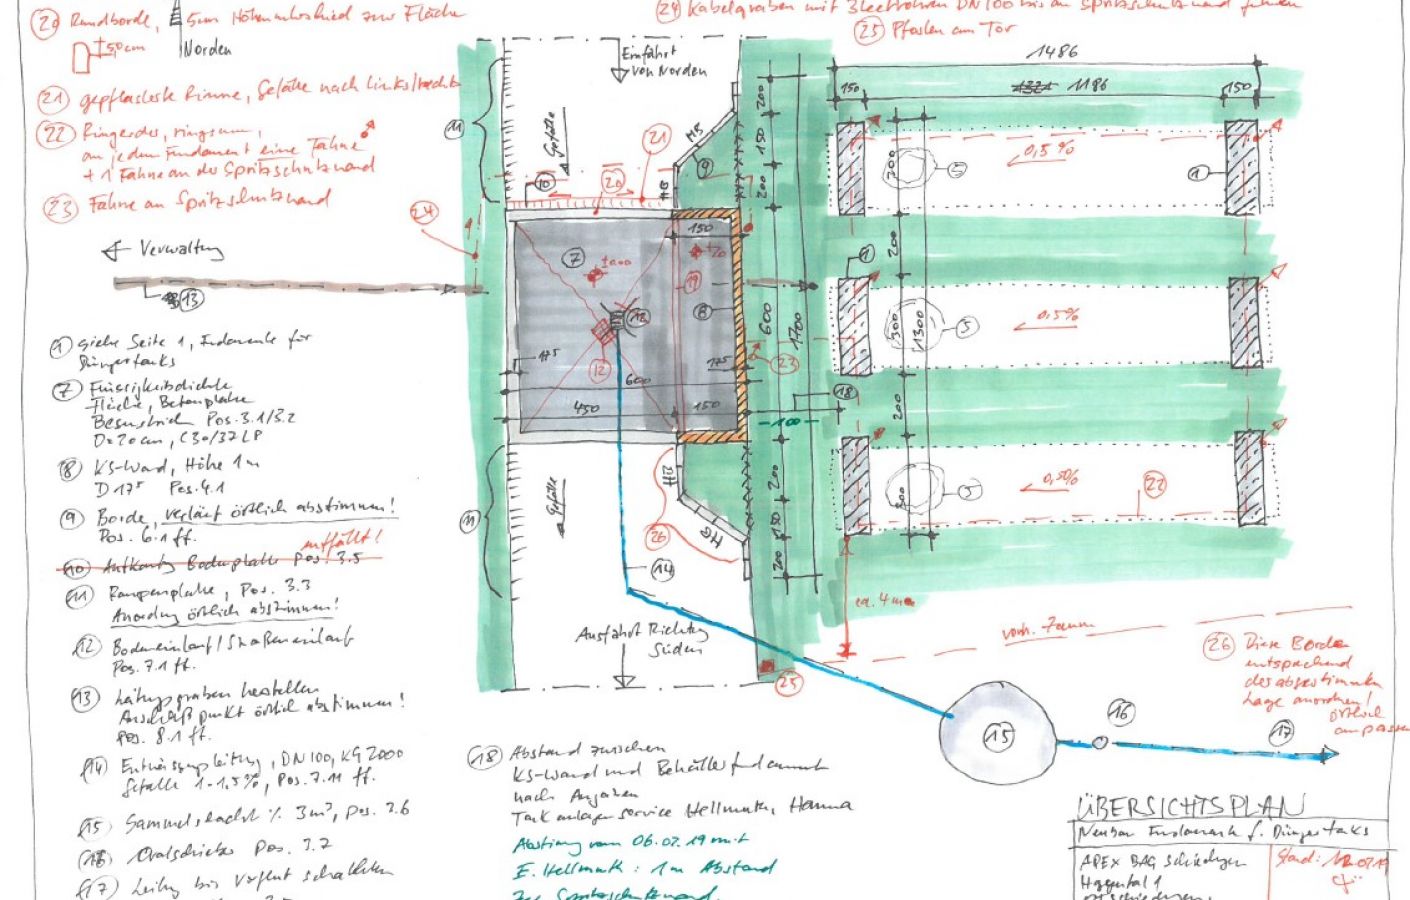 20 Rundborde,
± 50cm
5cm Höhenunterschied zur Fläche
Norden
21 gepflasterte Rinne, Gefälle nach links/rechts
22 Ringerder, ringsum,
an jedem Fundament eine Fahne
+ 1 Fahne an der Spritzschutzwand
23 Fahne an Spritzschutzwand
24 Kabelgraben mit 3 Leerrohren DN100 bis an Spritzschutzwand führen
25 Pfosten am Tor
Verwaltung
13
24
1 siehe Seite 1, Fundamente für
Düngertanks
7 Flüssigkeitsdichte
Fläche, Betonplatte
Besenstrich Pos. 3.1/3.2
D=20cm, C30/37 LP
8 KS-Wand, Höhe 1m
D 17⁵ Pos. 4.1
9 Borde, Verlauf örtlich abstimmen!
Pos. 6.1 ff.
entfällt!
10 Aufkantung Bodenplatte Pos. 3.5
11 Rampenplatte, Pos. 3.3
Anordnung örtlich abstimmen!
12 Bodeneinlauf/Straßeneinlauf
Pos. 7.1 ff.
13 Leitungsgraben herstellen
Anschlußpunkt örtlich abstimmen!
Pos. 8.1 ff.
14 Entwässerungsleitung, DN100, KG2000
Gefälle 1-1,5%, Pos. 7.11 ff.
15 Sammelschacht 3m³, Pos. 7.6
16 Ovalschieber Pos. 7.7
17 Leitung bis Vorflut
Einfahrt
von Norden
11
Gefälle
10
20
21
HB
9
150
7
±0.00
19
8
12
12
17⁵
600
450
150
17⁵
23
18
100
200
150
200
600
1700
200
150
200
11
Gefälle
HB
HB
26
14
Ausfahrt Richtung
Süden
25
1486
150
1186
150
300
5
0,5%
1
200
1
300
1300
5
0,5%
200
300
5
0,5%
22
ca. 4m
vorh. Zaun
26 Diese Borde
entsprechend
der abgestimmten
Lage anordnen!
örtlich
anpassen
15
16
17
18 Abstand zwischen
KS-Wand und Behälterfundament
nach Angaben
Tankanlagenservice Hellmuth, Hanna
Abstimmung vom 06.02.19 mit
E. Hellmuth: 1m Abstand
zur Spritzschutzwand.
ÜBERSICHTSPLAN
Neubau Fundamente f. Düngertanks
APEX BAG Schiedungen
Haggental 1
Stand: